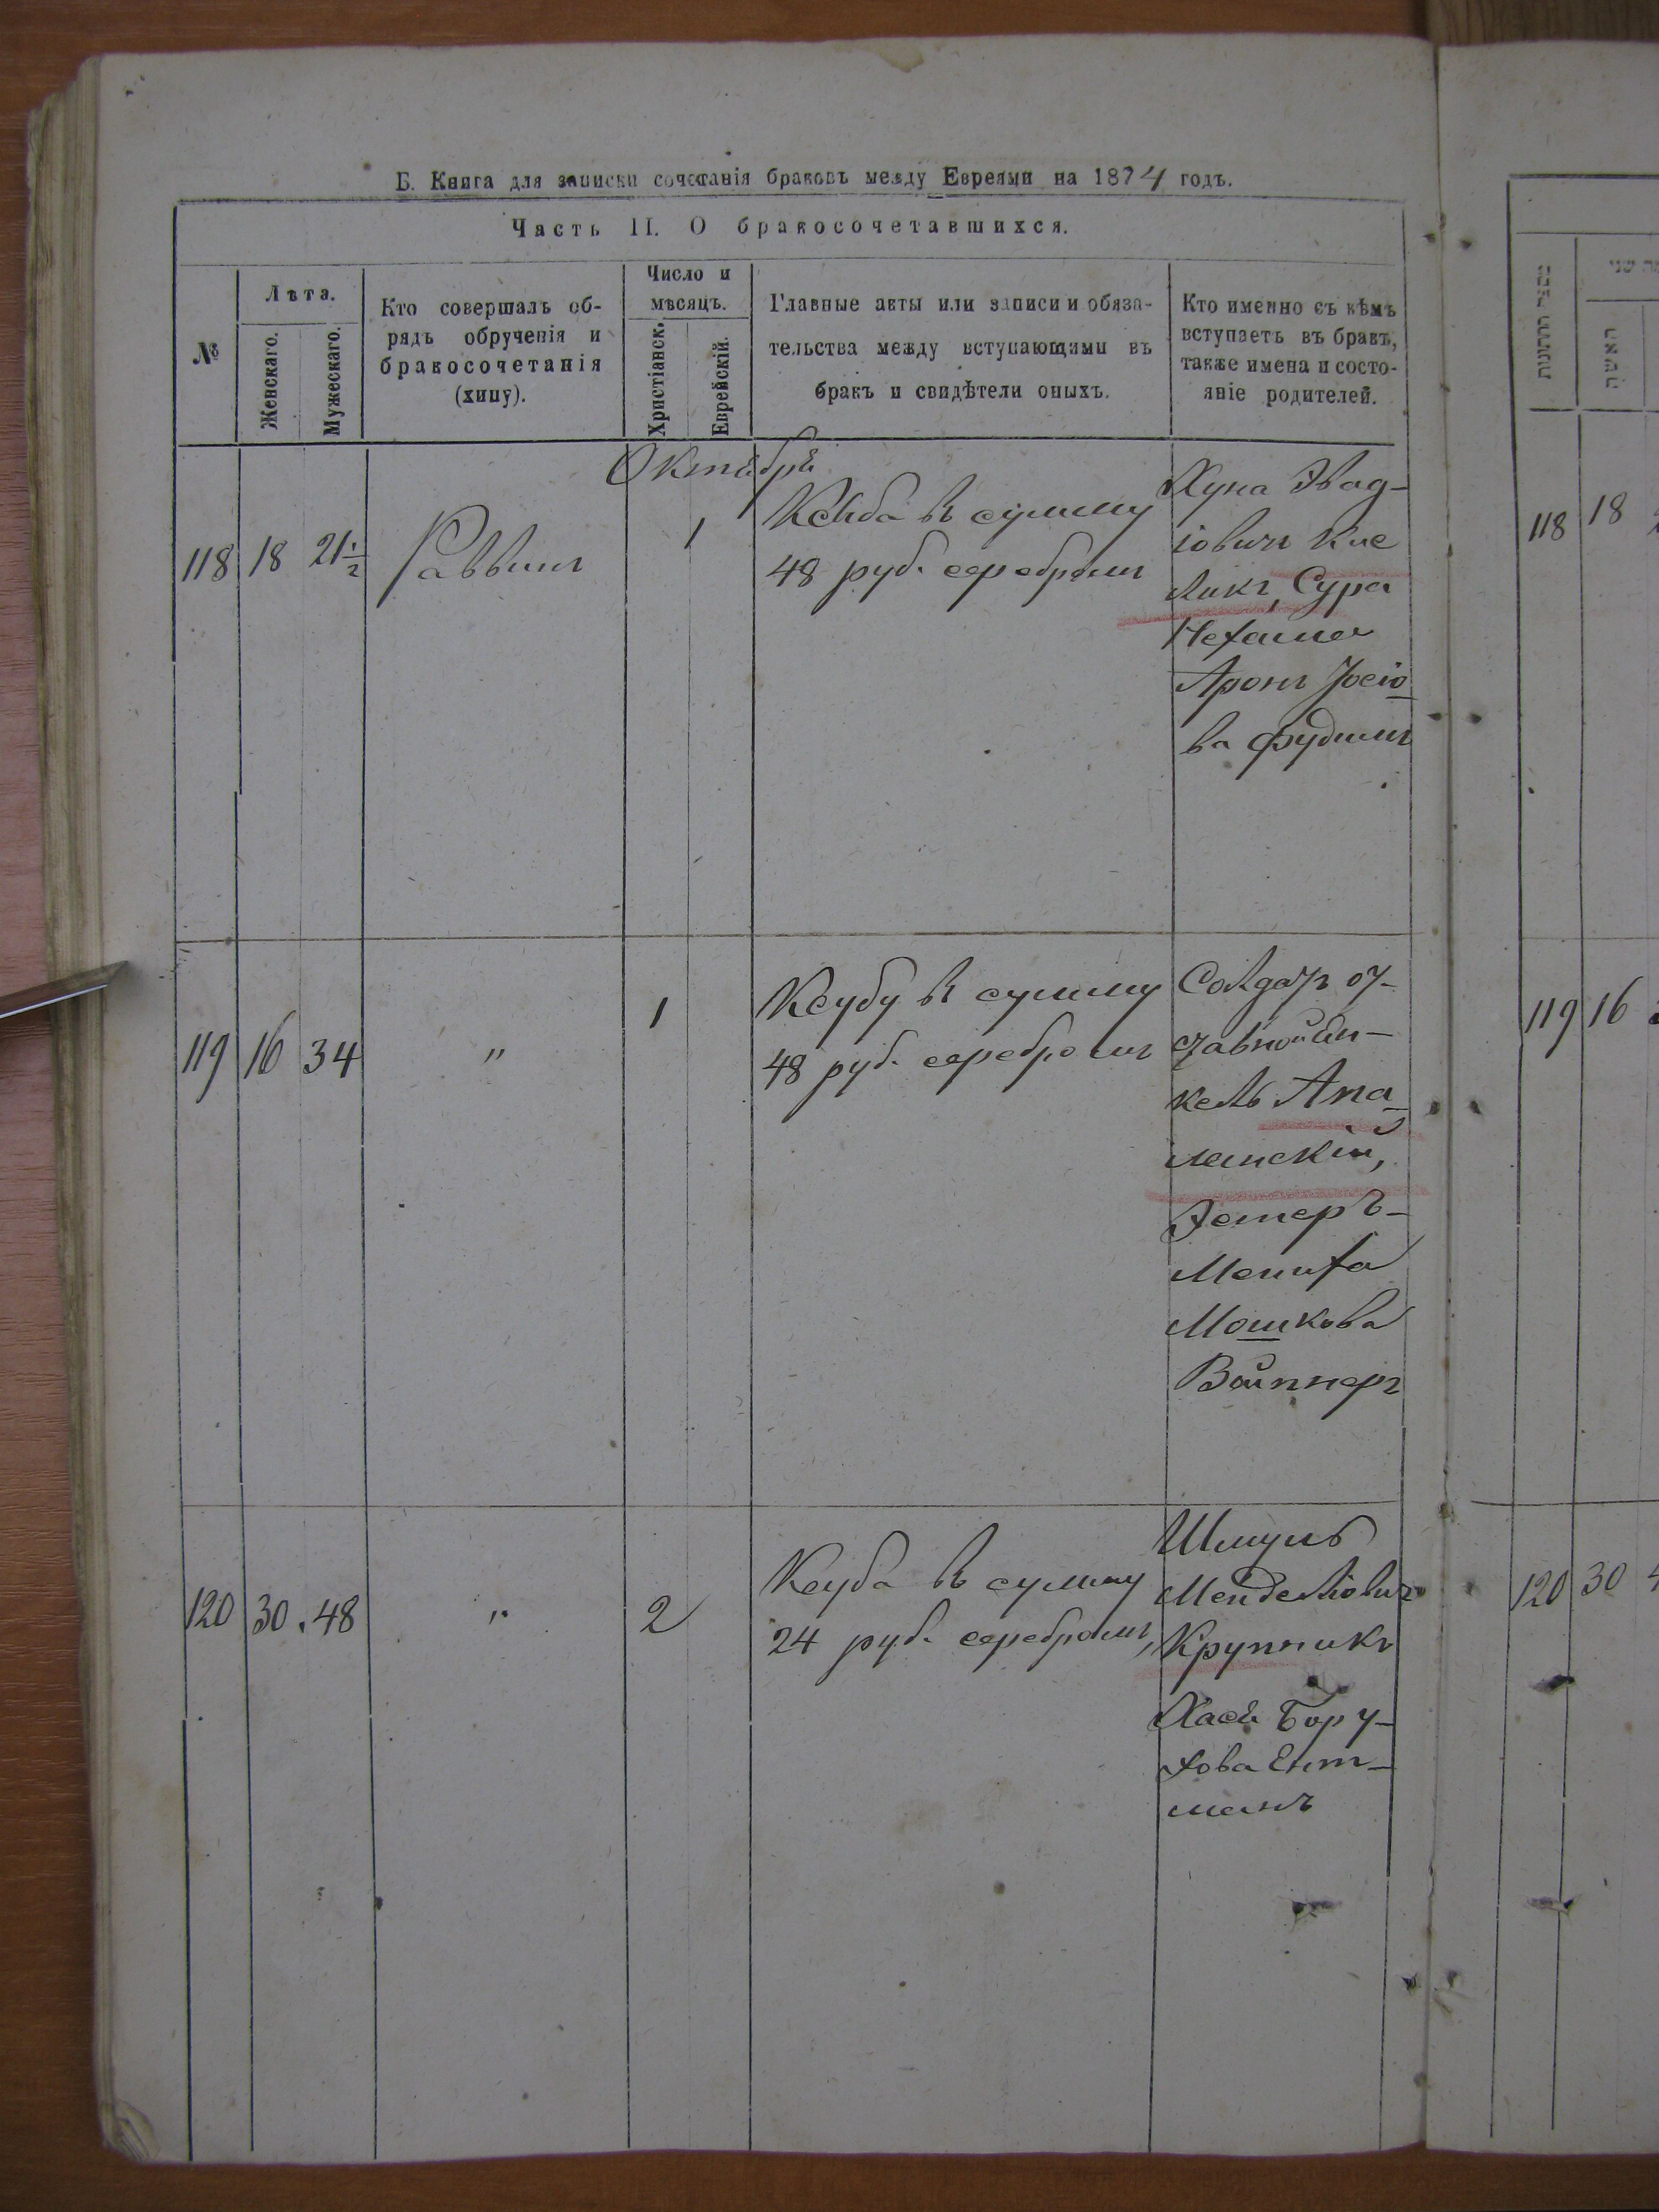 Б. Книга для записки сочетанія браковъ между Евреями на 1874 годъ.
Часть II. О бракосочетавшихся.
№
Лѣта.
Женскаго.
Мужескаго.
Кто совершалъ об-
рядъ обрученія и
бракосочетанія
(хипу).
Число и
мѣсяцъ.
Христіанск.
Еврейскій.
Главные акты или записи и обяза-
тельства между вступающими въ
бракъ и свидѣтели оныхъ.
Кто именно съ кѣмъ
вступаетъ въ бракъ,
также имена и состо-
яніе родителей.
Октября
118 18 21 1/2 Раввинъ 1
въ сумму
48 руб. серебромъ
Хуна
ликъ, Сура
Нехама
Аронъ Іосіо
ва Фудимъ
119 16 34 " 1
Ксубу въ сумму
48 руб. серебромъ
Солдатъ от-
ставной Ян-
кель Апа-
ланскій,
Эстеръ-
Мениха
Мошкова
Вайннеръ
120 30 48 " 2
Ксуба въ сумму
24 руб. серебромъ,
Шмуль
Менделіовичъ
Крупникъ
Хася Бору-
хова Ент-
манъ
118 18
119 16
120 30 4